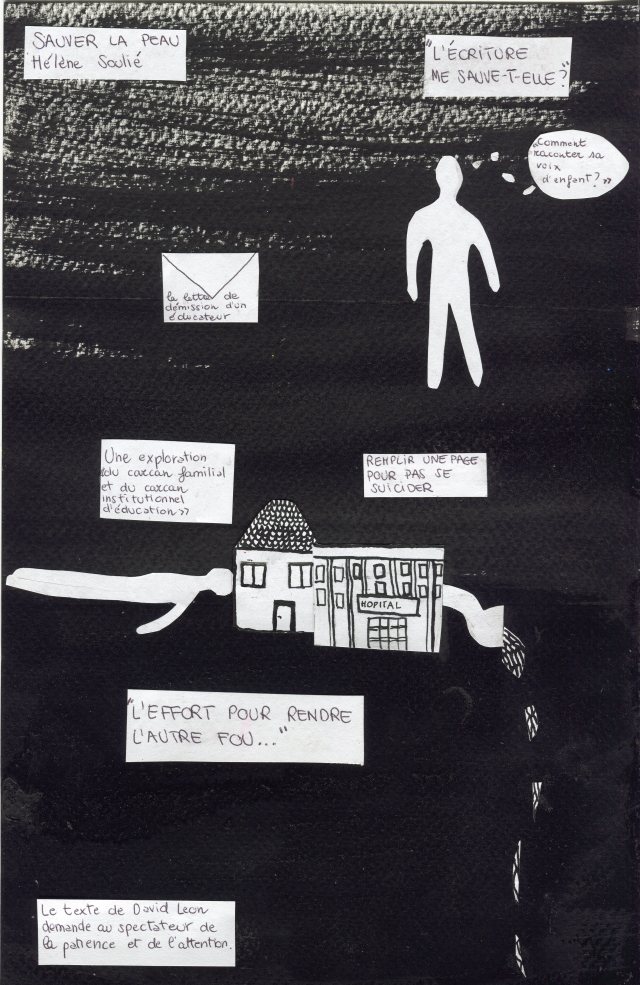 SAUVER LA PEAU
Hélène Soulié
"L'ÉCRITURE
ME SAUVE-T-ELLE?"
«Comment
raconter sa
voix
d'enfant?»
la lettre de
démission d'un
éducateur
Une exploration
du carcan familial
et du carcan
institutionnel
d'éducation»
REMPLIR UNE PAGE
POUR PAS SE
SUICIDER
HOPITAL
"L'EFFORT POUR RENDRE
L'AUTRE FOU..."
Le texte de David Leon
demande au spectateur de
la patience et de l'attention.